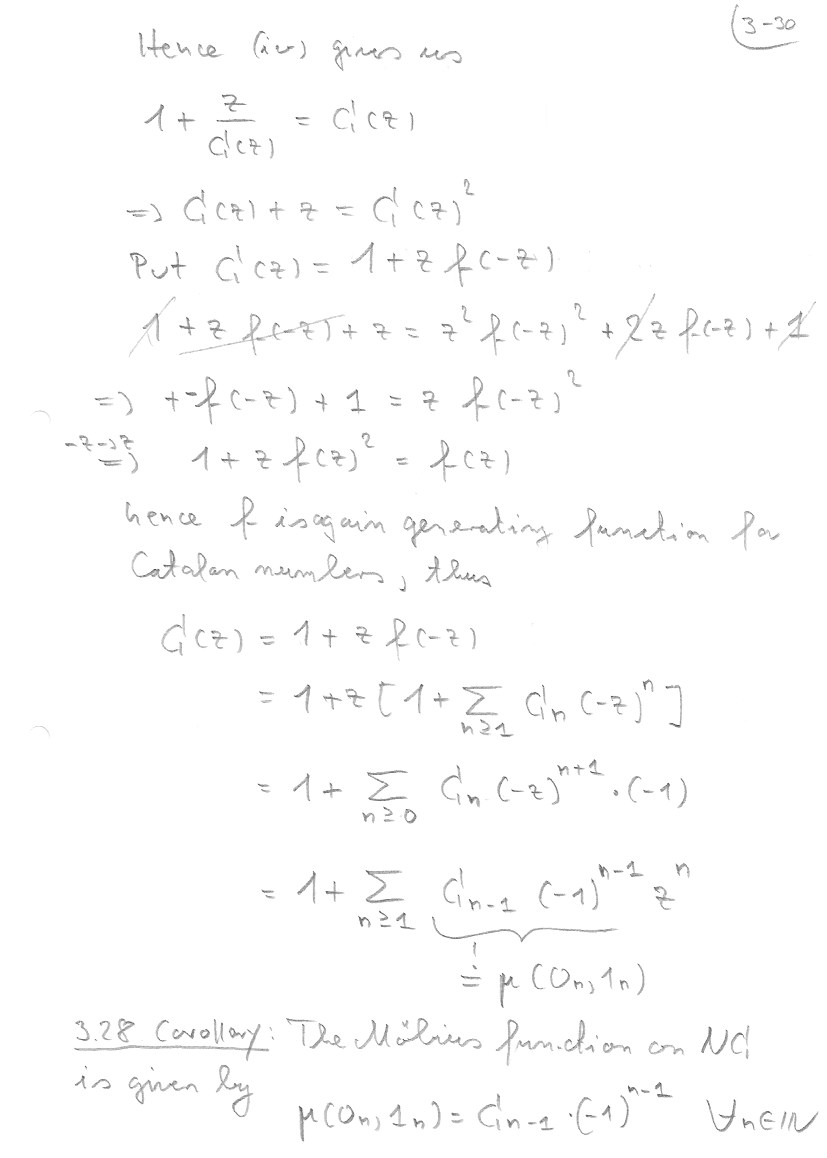 3-30
Hence (iv) gives us
1 + z/C(z) = C(z)
=> C(z) + z = C(z)²
Put C(z) = 1 + z f(-z)
1 + z f(-z) + z = z² f(-z)² + 2z f(-z) + 1
=> + - f(-z) + 1 = z f(-z)²
-z→z => 1 + z f(z)² = f(z)
hence f is again generating function for
Catalan numbers, thus
C(z) = 1 + z f(-z)
= 1 + z [1 + ∑_{n≥1} C_n (-z)^n]
= 1 + ∑_{n≥0} C_n (-z)^{n+1} · (-1)
= 1 + ∑_{n≥1} C_{n-1} (-1)^{n-1} z^n
≐ μ(0_n, 1_n)
3.28 Corollary: The Möbius function on NC
is given by
μ(0_n, 1_n) = C_{n-1} · (-1)^{n-1} ∀n∈ℕ